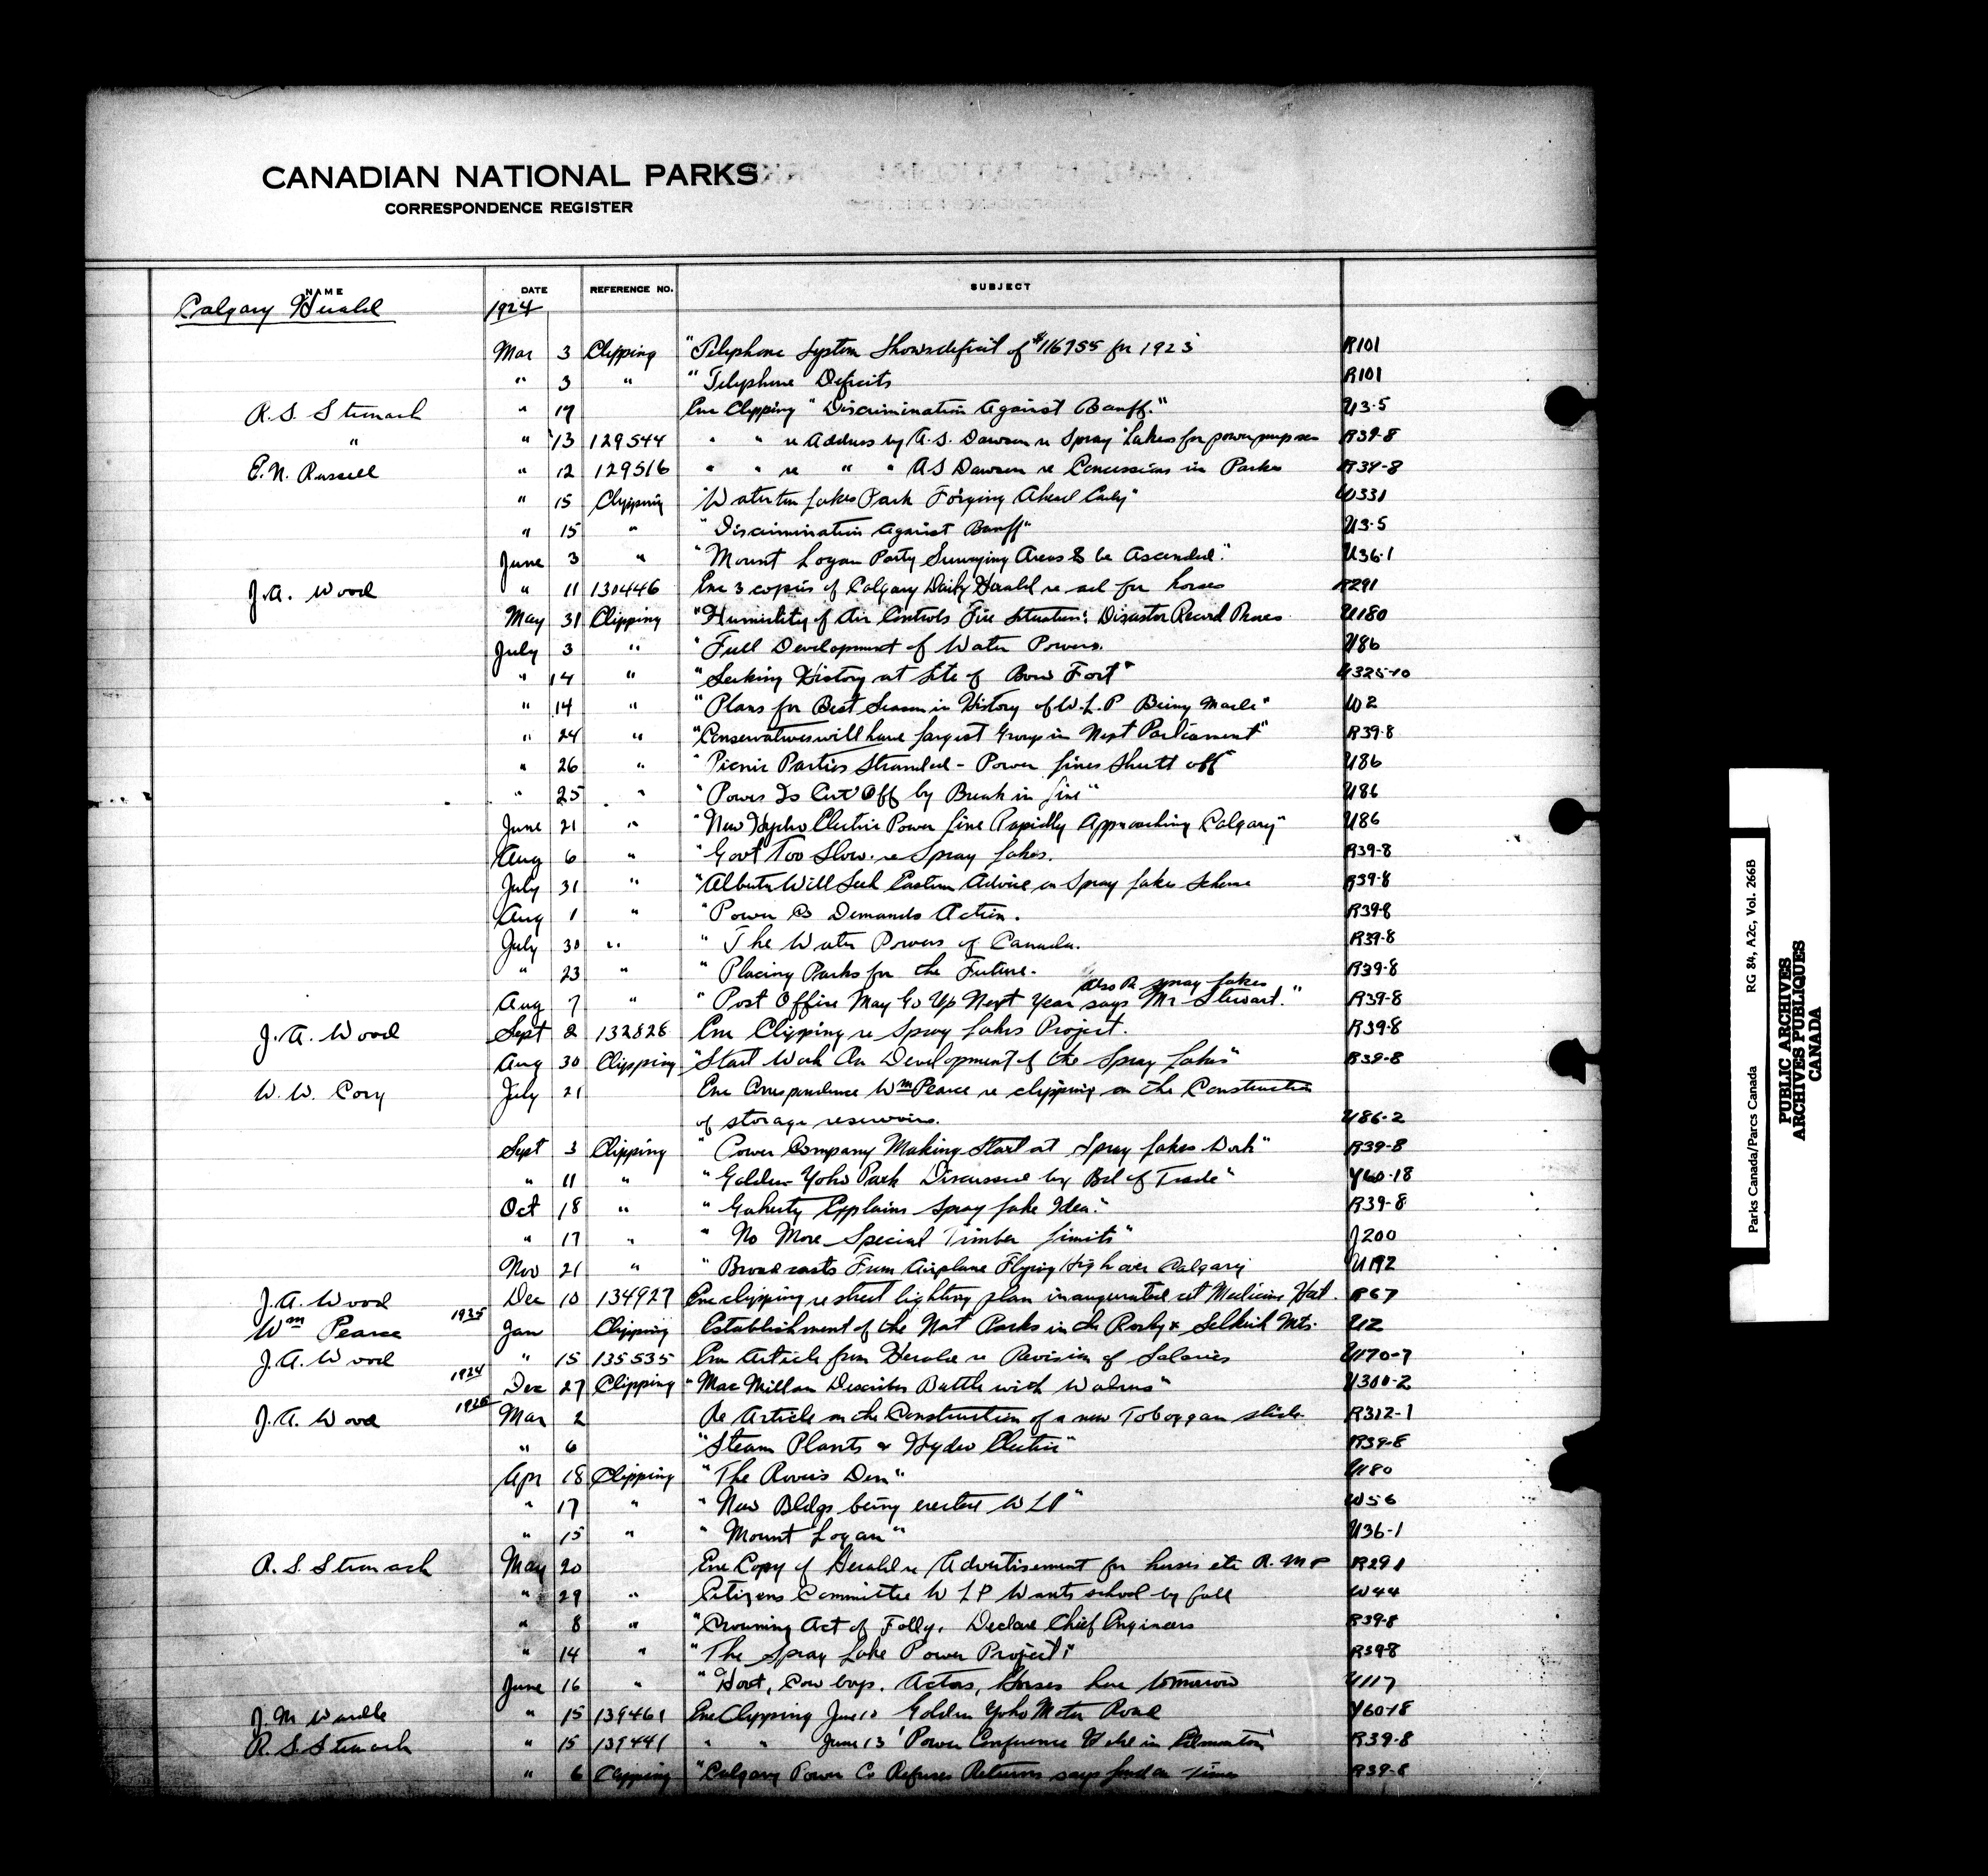 CANADIAN NATIONAL PARKS
CORRESPONDENCE REGISTER
NAME DATE REFERENCE NO. SUBJECT
Calgary Herald 1924
Mar 3 Clipping "Telephone System Shows deficit of $116955 for 1923 R101
" 3 " "Telephone Deficits R101
R.S. Stronach " 17 Enc Clipping "Discrimination Against Banff." U3-5
" " 13 129544 " " re Address by A.S. Dawson re Spray Lakes for power purposes R39-8
E.N. Russell " 12 129516 " " re " " A S Dawson re Concessions in Parks R39-8
" 15 Clipping "Waterton Lakes Park Forging Ahead Early" W331
" 15 " "Discrimination Against Banff" U3-5
June 3 " "Mount Logan Party Surveying Areas to be Ascended." U36-1
J.A. Wood " 11 130446 Enc 3 copies of Calgary Daily Herald re ad for horses R291
May 31 Clipping "Humidity of Air Controls Fire Situation: Disaster Record Proves U180
July 3 " "Full Development of Water Powers. U86
" 14 " "Seeking History at Site of Bow Fort" U325-10
" 14 " "Plans for Best Season in History of W.L.P Being Made" W2
" 24 " "Conservatives will have largest Group in Next Parliament" R39-8
" 26 " "Picnic Parties Stranded - Power Lines Shutt off" U86
" 25 " "Power Is Cut Off by Break in Line" U86
June 21 " "New Hydro Electric Power Line Rapidly Approaching Calgary" U86
Aug 6 " "Govt Too Slow. re Spray Lakes. R39-8
July 31 " "Alberta Will Seek Eastern Advice on Spray Lakes Scheme R39-8
Aug 1 " "Power Co Demands Action. R39-8
July 30 " "The Water Powers of Canada. R39-8
" 23 " "Placing Parks for the Future. R39-8
also re Spray Lakes
Aug 7 " "Post Office May Go Up Next Year says Mr Stewart." R39-8
J.A. Wood Sept 2 132828 Enc Clipping re Spray Lakes Project. R39-8
Aug 30 Clipping "Start Work On Development of the Spray Lakes" R39-8
W.W. Cory July 21 Enc Correspondence Wm Pearce re clipping on the Construction
of storage reservoirs. U86-2
Sept 3 Clipping "Power Company Making Start at Spray Lakes Work" R39-8
" 11 " "Golden-Yoho Park Discussed by Bd of Trade" Y60-18
Oct 18 " "Gaherty Explains Spray Lake Idea." R39-8
" 17 " "No More Special Timber Limits" J200
Nov 21 " "Broadcasts From Airplane Flying High over Calgary U192
J.A. Wood Dec 10 134927 Enc clipping re street lighting plan inaugurated at Medicine Hat. R67
Wm Pearce 1925 Jan Clipping Establishment of the Nat Parks in the Rocky & Selkirk Mts. U2
J.A. Wood " 15 135535 Enc Article from Herald re Revision of Salaries U170-7
1924 Dec 27 Clipping "MacMillan Describes Battle with Walrus" U300-2
J.A. Wood 1925 Mar 2 Re Article on the Construction of a new Toboggan slide R312-1
" 6 "Steam Plants & Hydro Electric" R39-8
Apr 18 Clipping "The Rovers Den" U180
" 17 " "New Bldgs being erected W L P" W56
" 15 " "Mount Logan" U36-1
R.S. Stronach May 20 Enc Copy of Herald re Advertisement for horses etc R.M.P R291
" 29 " Citizens Committee W L P Wants school by fall W44
" 8 " "Crowning Act of Folly, Declare Chief Engineers R39-8
" 14 " "The Spray Lake Power Project" R39-8
June 16 " " Cow boys, Actors, Horses here tomorrow U117
J.M. Wardle " 15 139461 Enc Clipping June 10 Golden Yoho Motor Road Y60-18
R.S. Stronach " 15 139441 " " June 13 'Power Conference Held in Edmonton' R39-8
" 6 Clipping "Calgary Power Co Refuses Returns says London Times R39-8
Parks Canada/Parcs Canada RG 84, A2c, Vol. 266B
PUBLIC ARCHIVES
ARCHIVES PUBLIQUES
CANADA